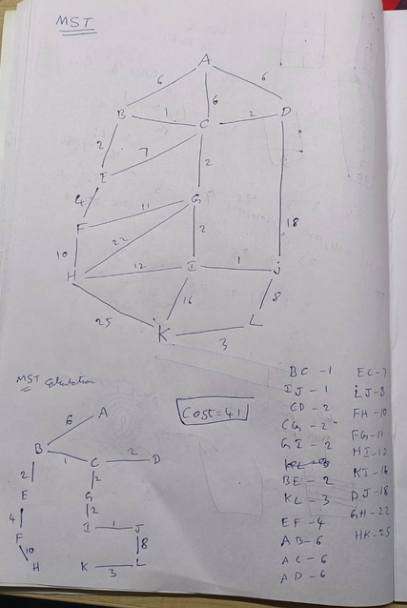 MST
A
6
6
6
B
1
C
2
D
2
7
2
E
4
11
G
F
22
2
18
10
12
I
1
J
H
16
8
25
L
K
3
MST
Cost=41
6
A
B
1
C
2
D
2
2
E
G
4
2
F
I
1
J
10
8
H
K
3
L
BC - 1
IJ - 1
CD - 2
CG - 2
GI - 2
KL - 3
BE - 2
KL - 3
EF - 4
AB - 6
AC - 6
AD - 6
EC - 7
LJ - 8
FH - 10
FG - 11
HI - 12
KI - 16
DJ - 18
GH - 22
HK - 25